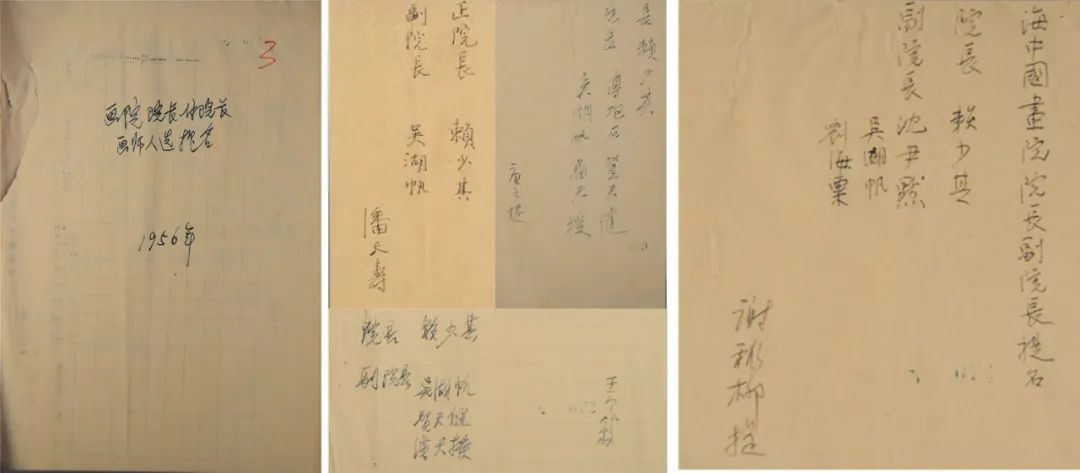 3
画院院长付院长
画师人选提名
1956年
正院長 賴少其
副院長 吳湖帆
潘天壽
長 賴少其
傅抱石 賀天健
吳湖帆 潘天授
院長 賴少其
副院長 吳湖帆
賀天健
潘天授
王个簃
海中國畫院院長副院長提名
院長 賴少其
副院長 沈尹默
吳湖帆
劉海粟
謝稚柳提